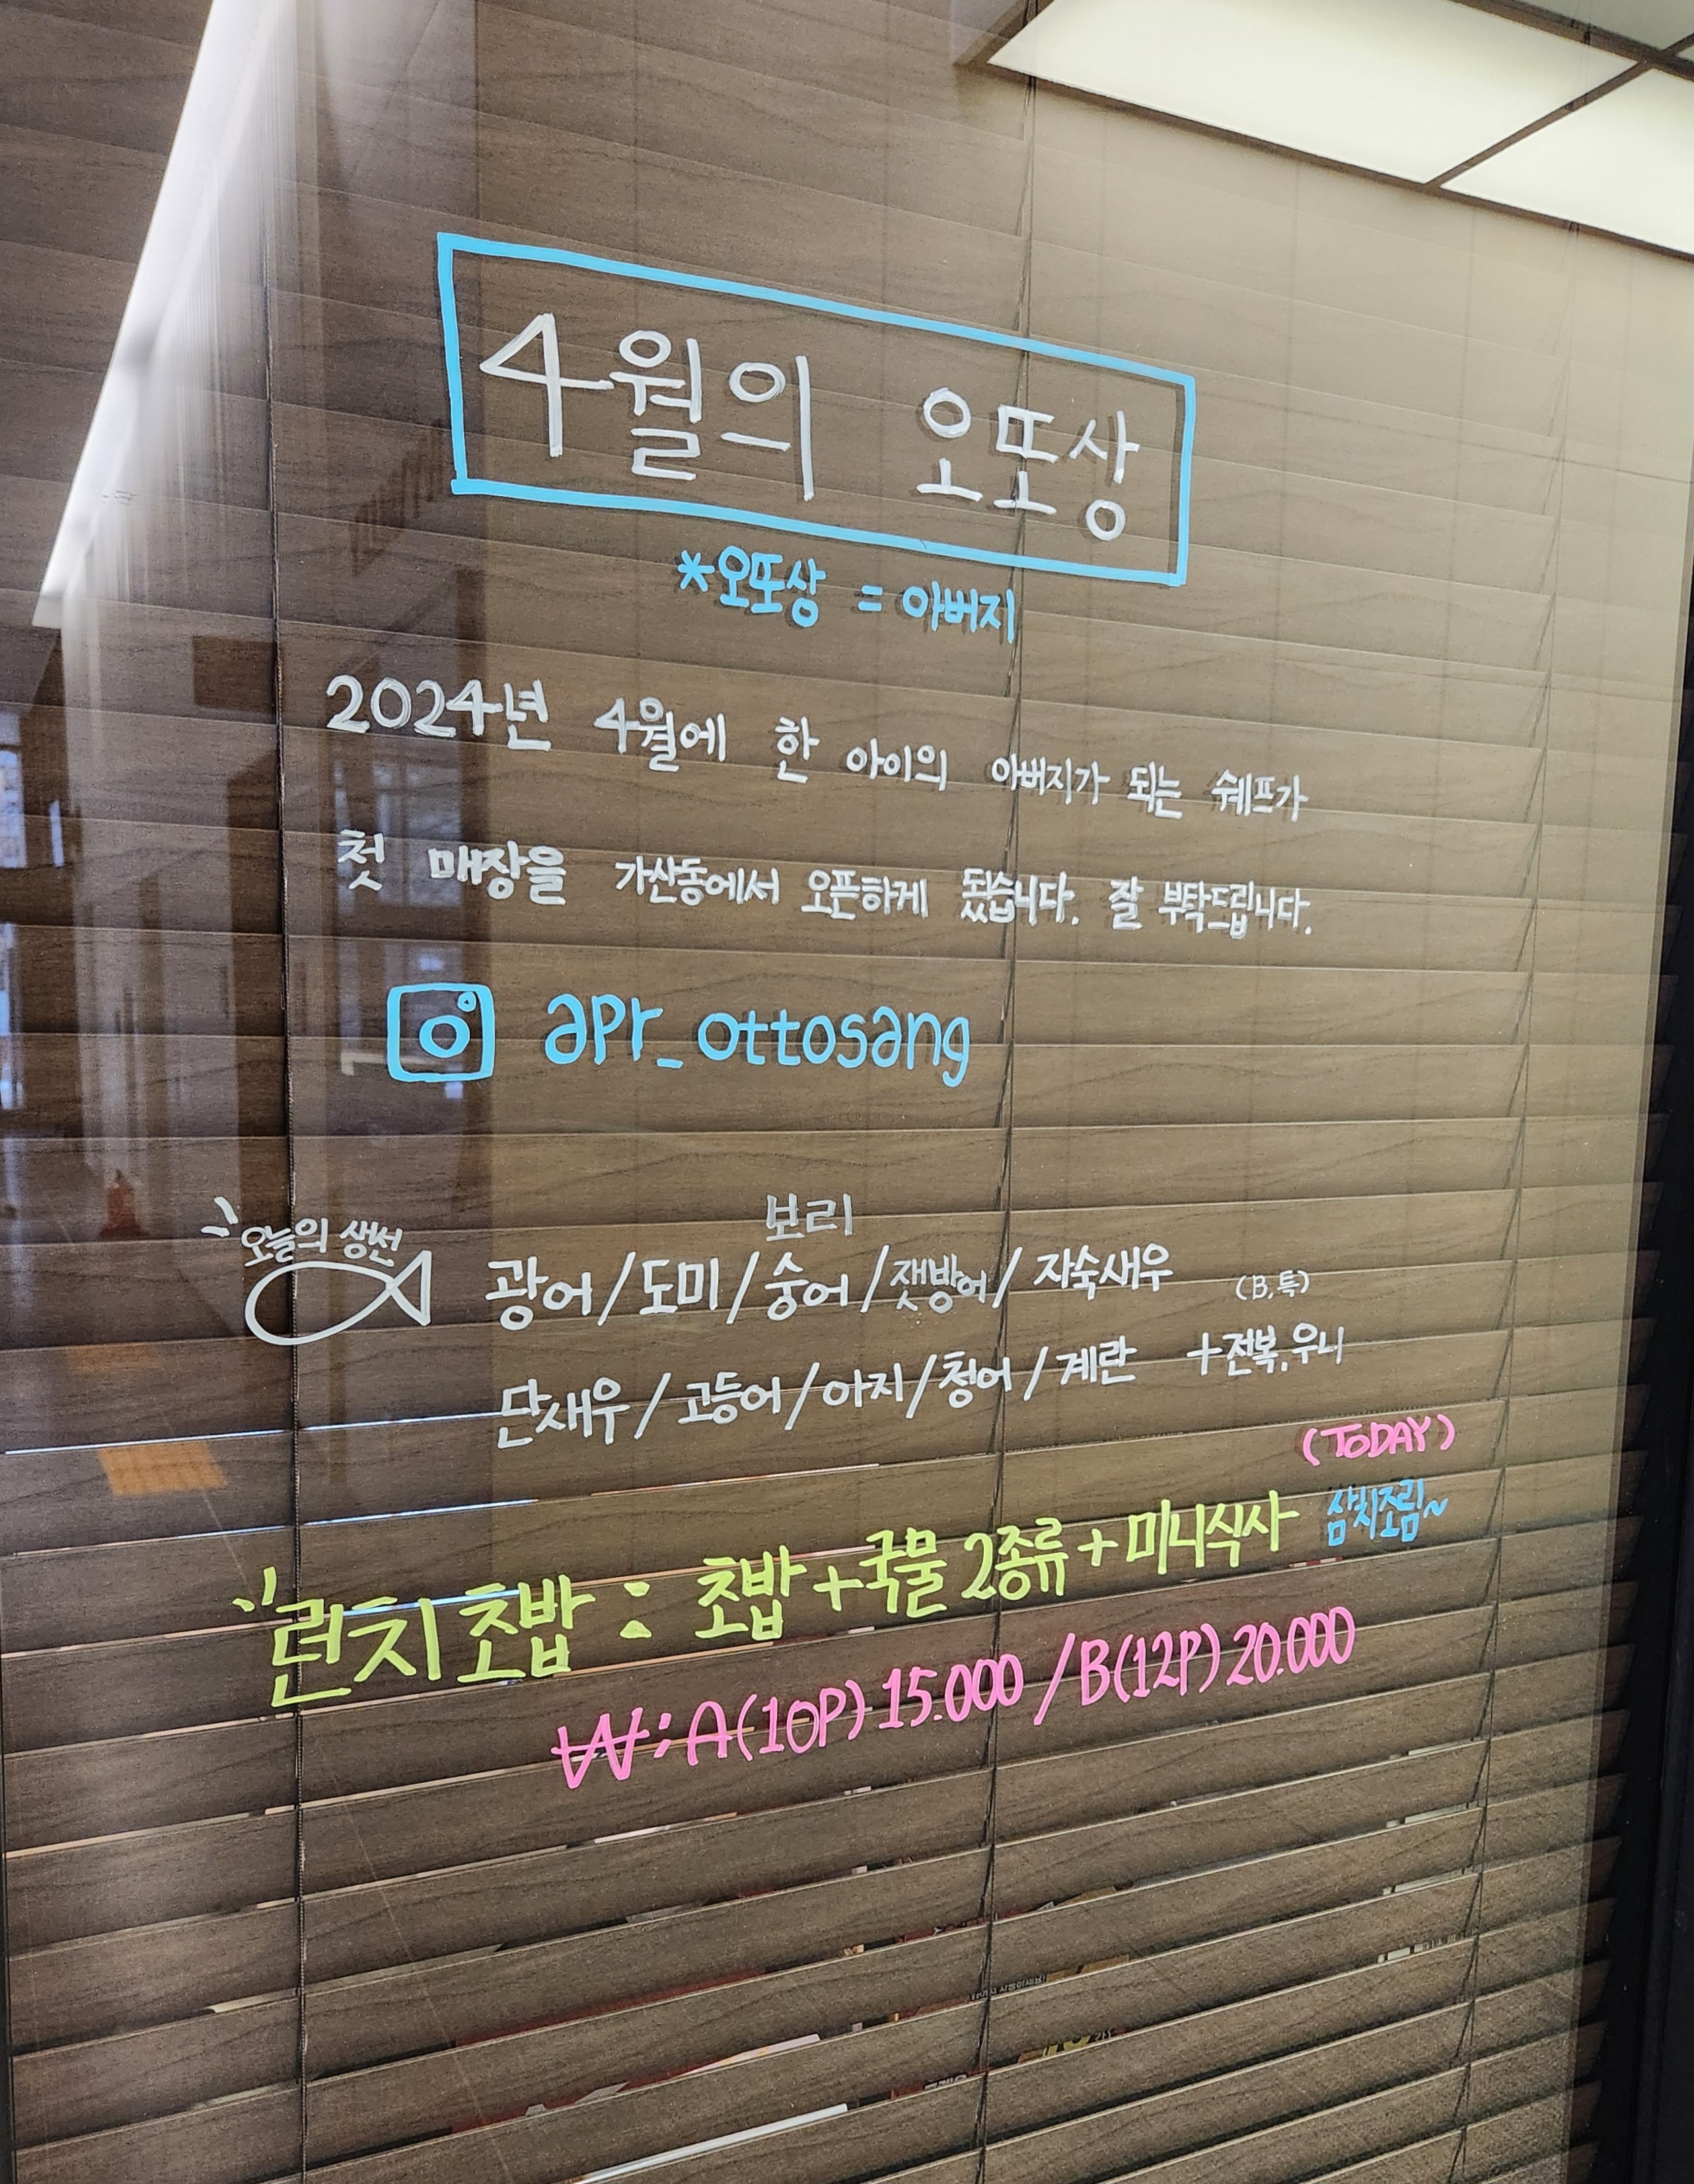 4월의 오또상
*오또상 = 아버지
2024년 4월에 한 아이의 아버지가 되는 쉐프가
첫 매장을 가산동에서 오픈하게 됐습니다. 잘 부탁드립니다.
apr_ottosang
오늘의 생선
보리
광어/도미/숭어/잿방어/자숙새우 (B,특)
단새우/고등어/아지/청어/계란 +전복,우니
(TODAY)
런치초밥 : 초밥+국물 2종류+미니식사 삼치조림~
₩:A(10P)15.000/B(12P)20.000